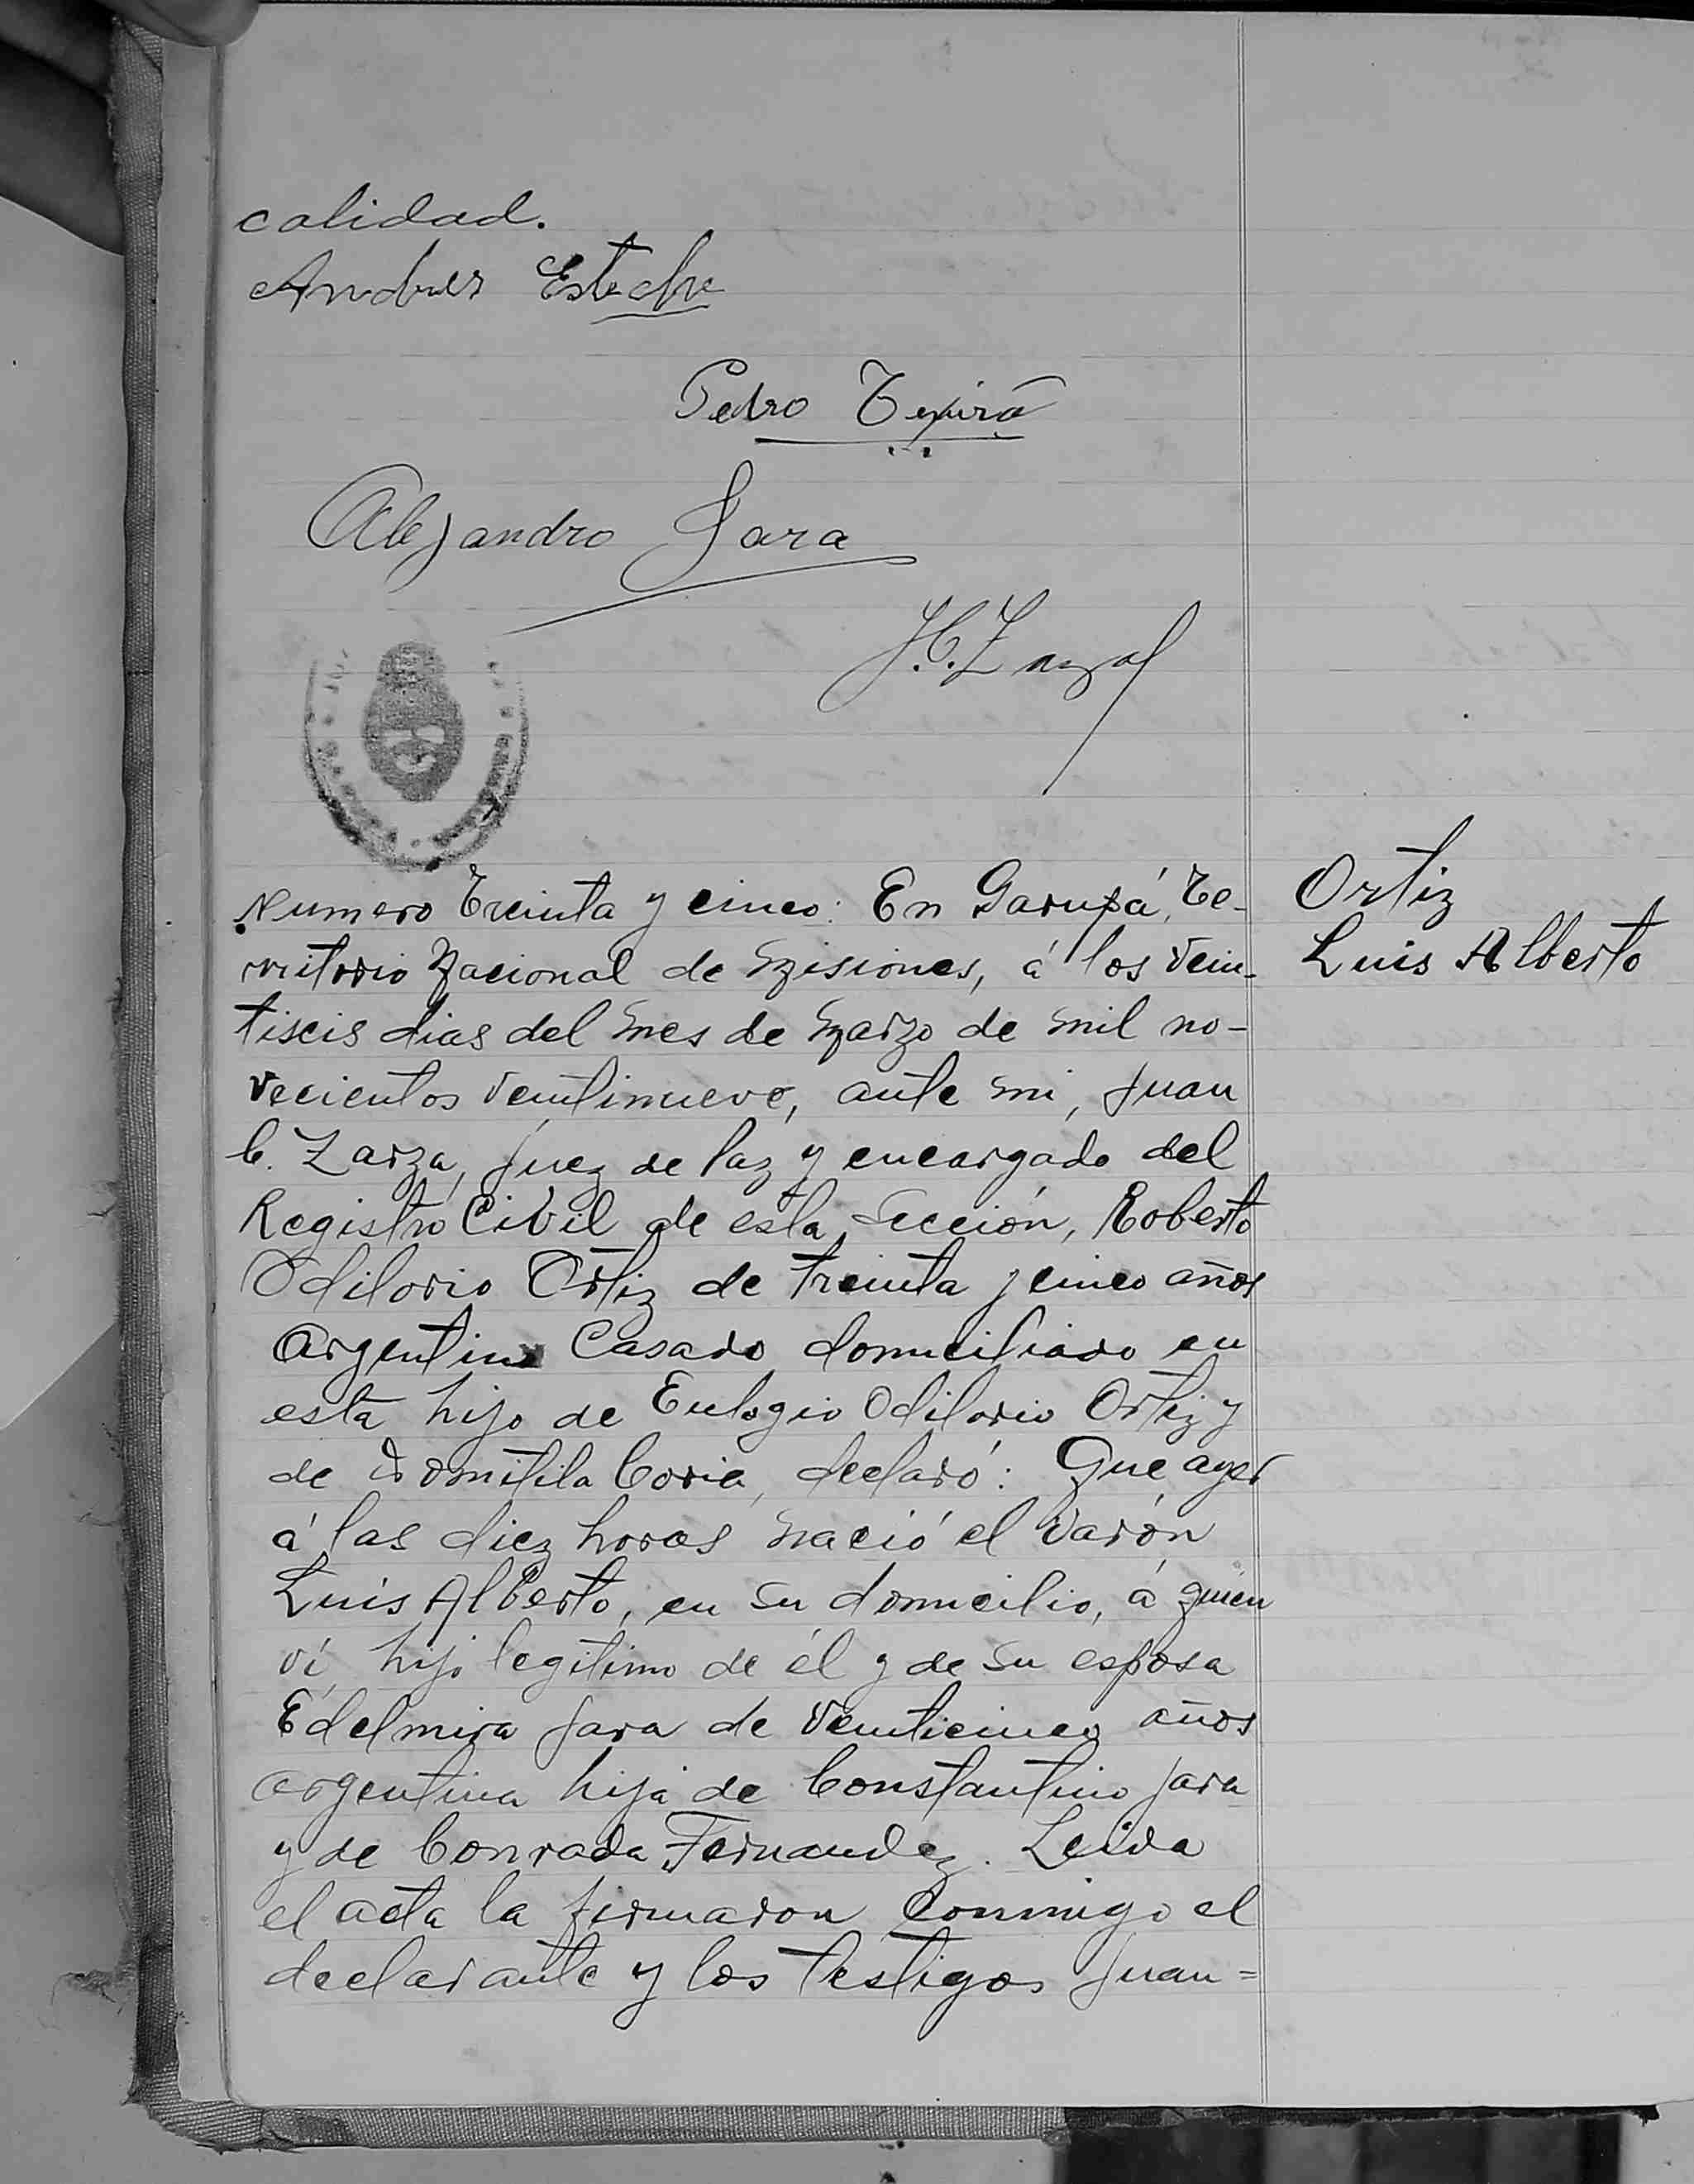 calidad.
Andres Esteche
Pedro
Alejandro Jara
Numero Treinta y cinco: En Garupá, Te-
rritorio Nacional de Misiones, á los vein-
tiseis dias del mes de Marzo de mil no-
vecientos veintinueve, ante mi, Juan
C. Zarza, Juez de Paz y encargado del
Registro Civil de esta Sección, Roberto
Odilorio Ortiz de treinta y cinco años
Argentino Casado domiciliado en
esta hijo de Eulogio Odilorio Ortiz y
de Domitila Coria, declaró: Que ayer
á las diez horas nació el varón
Luis Alberto, en su domicilio, á quien
ví, hijo legitimo de él y de su esposa
Edelmira Jara de veinticinco años
argentina hija de Constantino Jara
y de Conrada Fernandez. Leida
el acta la firmaron conmigo el
declarante y los testigos Juan=
Ortiz
Luis Alberto